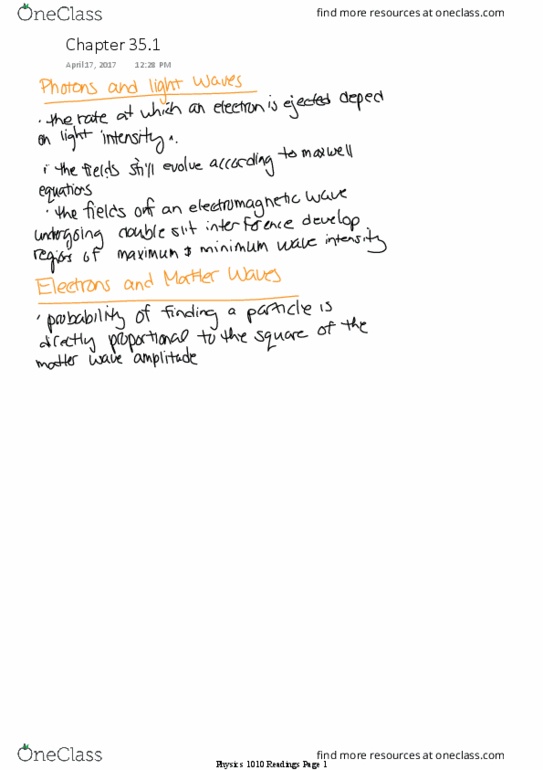 OneClass find more resources at oneclass.com
Chapter 35.1
April 17, 2017 12:28 PM
Photons and light Waves
· the rate at which an electron is ejected deped
on light intensity.
· the fields still evolve according to maxwell
equations
· the fields off an electromagnetic wave
undergoing double slit interference develop
regions of maximum & minimum wave intensity
Electrons and Matter Waves
· probability of finding a particle is
directly proportional to the square of the
matter wave amplitude
OneClass find more resources at oneclass.com
Physics 1010 Readings Page 1